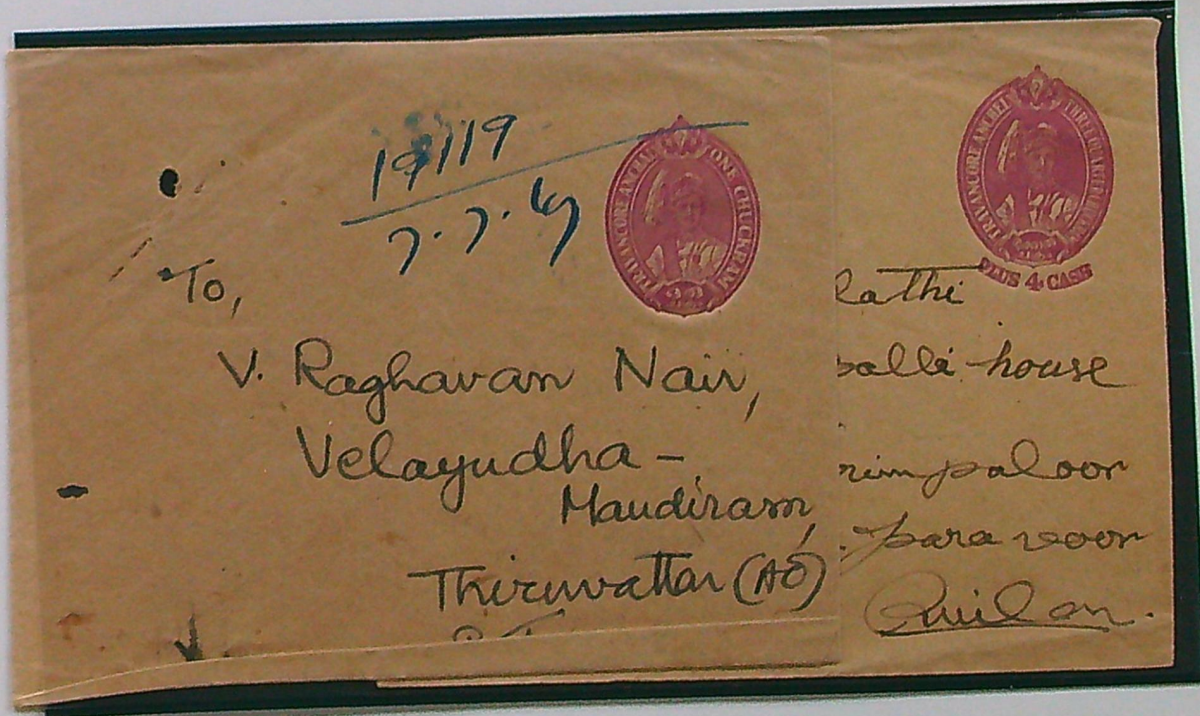 19119
7.7.49
TRAVANCORE ANCHAL ONE CHUCKRAM
To,
V. Raghavan Nair,
Velayudha-
Mandiram,
Thiruvattar (AO)
TRAVANCORE ANCHEL THREE QUARTER CHUCKRAM
PLUS 4 CASH
lathi
palli house
rimpaloor
paravoor
Quilon.